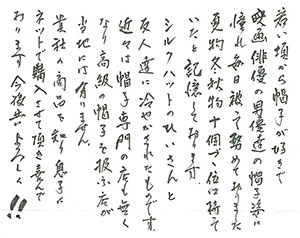 若い頃から帽子が好きで
映画俳優の男優達の帽子姿に
憧れ毎日被って務めておりました
夏物冬秋物十個づつ位は持って
いたと記憶しております
シルクハットのひいさんと
友人達に冷やかされたものです。
近々は帽子専門の店も無く
なり高級の帽子を扱ふ店が
当地には有りません
貴社の商品を知り息子に
ネットで購入させて頂き喜んで
おります 今後共によろしく!!